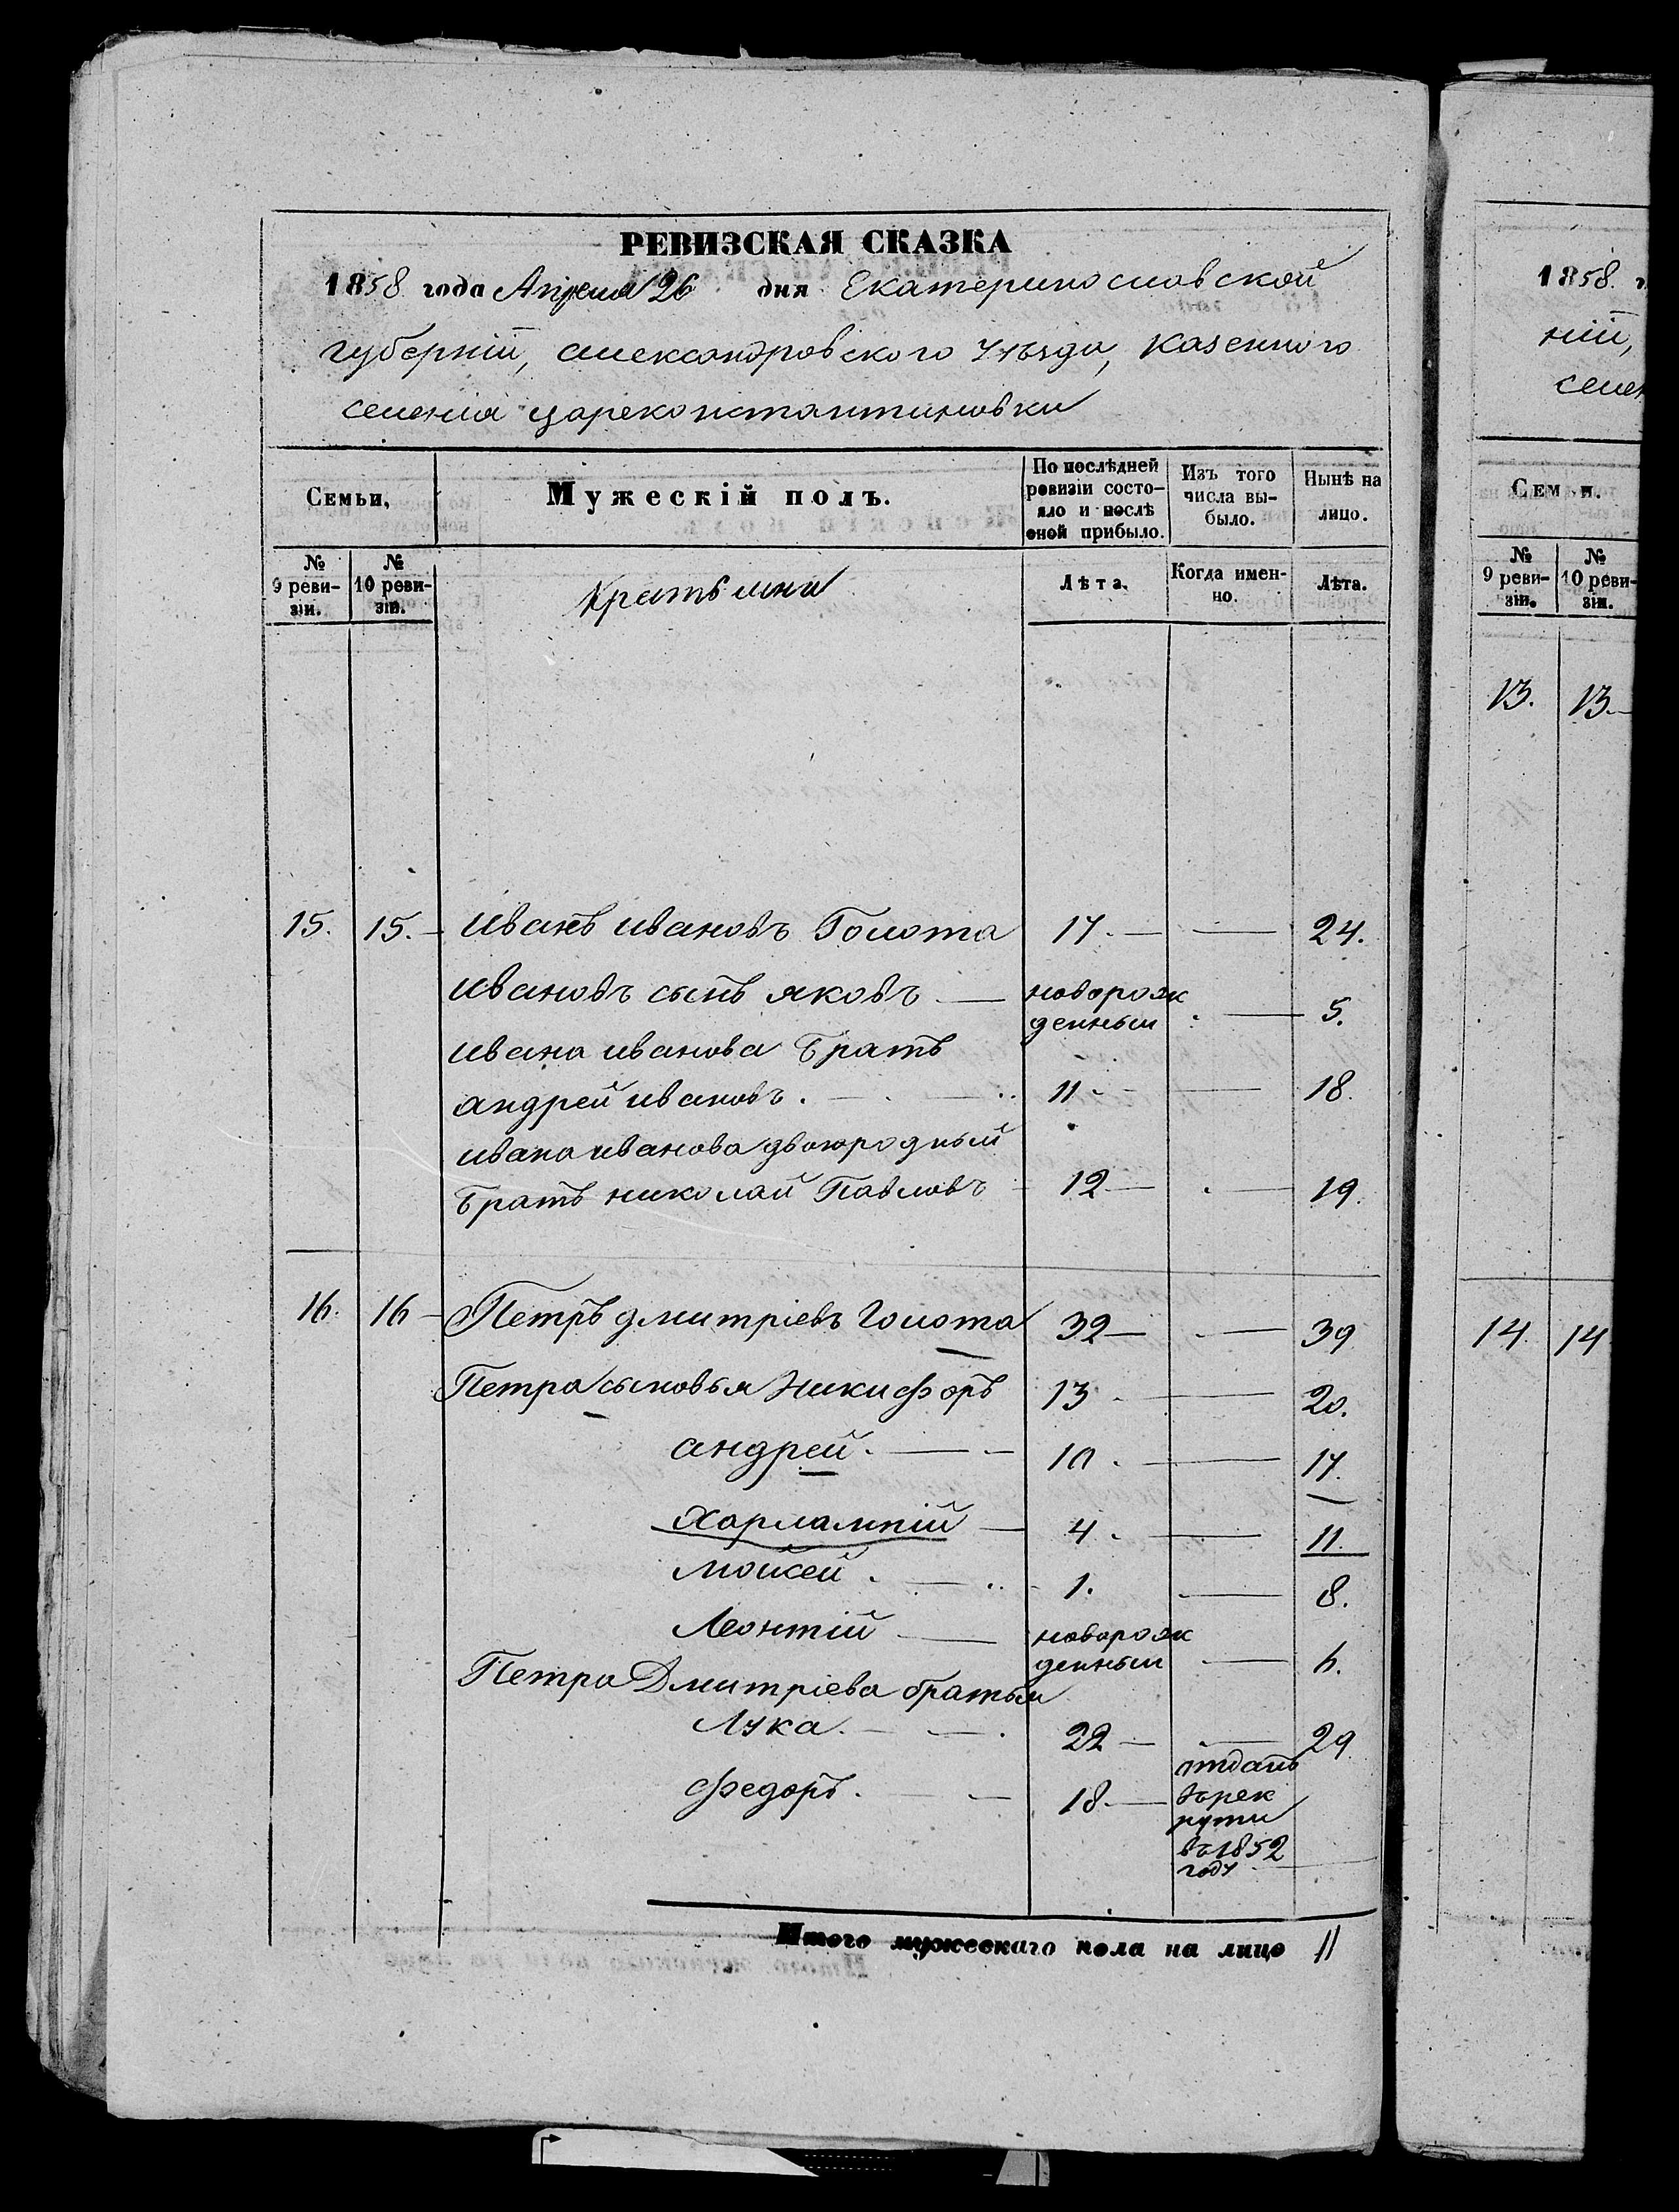 РЕВИЗСКАЯ СКАЗКА
1858 года Апреля 26 дня Екатеринославской
губерніи, александровского Уѣзда, Казенного
селенія цареконстантиновки
Семьи,
Мужескій полъ.
По послѣдней ревизіи состо-
яло и послѣ оной прибыло.
Изъ того числа вы-
было.
Нынѣ на лицо.
№ 9 реви-
зіи.
№ 10 реви-
зіи.
Крестьяни
Лѣта.
Когда имен-
но.
Лѣта.
15. 15. Иванъ ивановъ Голота 17. 24.
Ивановъ сынъ яковъ новорож
денный 5.
ивана иванова братъ
андрей ивановъ. 11 18.
ивана иванова двоюродный
братъ николай Павловъ 12 19.
16. 16 Петръ дмитріевъ Голота 32 39
Петра сыновья Никифоръ 13 20.
андрей. 10. 17.
Харлампій 4. 11.
мойсей. 1. 8.
Леонтій новорож
денный 6.
Петра Дмитріева братья
Лука. 22 29.
Федоръ. 18. отданъ
въ рек
руты
въ 1852
году
Итого мужескаго пола на лицо 11
1858. г.
ніи,
селен
Семьи.
№ 9 реви-
зіи.
№ 10 реви-
зіи.
13. 13.
14. 14